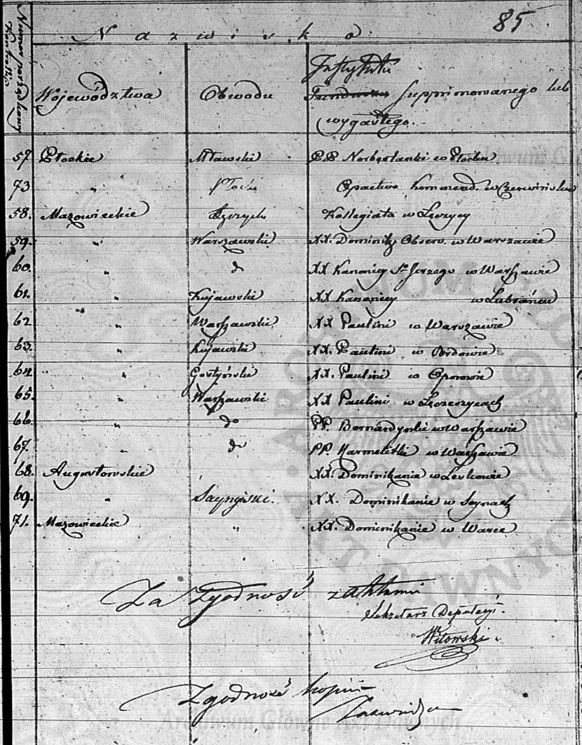 85
Nazwisko
Województwa Obwodu Instytutu
Funduszu supprimowanego lub
wygasłego.
57 Płockie Mławski PP. Norbertanki w Płocku
73 " Płocki Opactwo komend. w Czerwińsku
58. Mazowieckie Łęczyck Kollegiata w Łęczycy
59. " Warszawski XX. Dominik Obserw. w Warszawie
60. " do XX Kanonicy St Jerzego w Warszawie
61. " Kujawski XX Kanonicy w Lubrańcu
62. " Warszawski XX Paulini w Warszawie
63. " Kujawski XX. Paulini w Brdowie
64. " Gostyński XX. Paulini w Oporowie
65. " Warszawski XX Paulini w Łęczeszycach
66. " do PP. Bernardynki w Warszawie
67. " do PP Karmelitki w Warszawie
68. Augustowskie XX. Dominikanie w
69. " Sejneński. XX. Dominikanie w Sejnach
71. Mazowieckie " XX. Dominikanie w Warce
Za zgodność z aktami
Sekretarz Deputacyi.
Witowski
Zgodność kopii